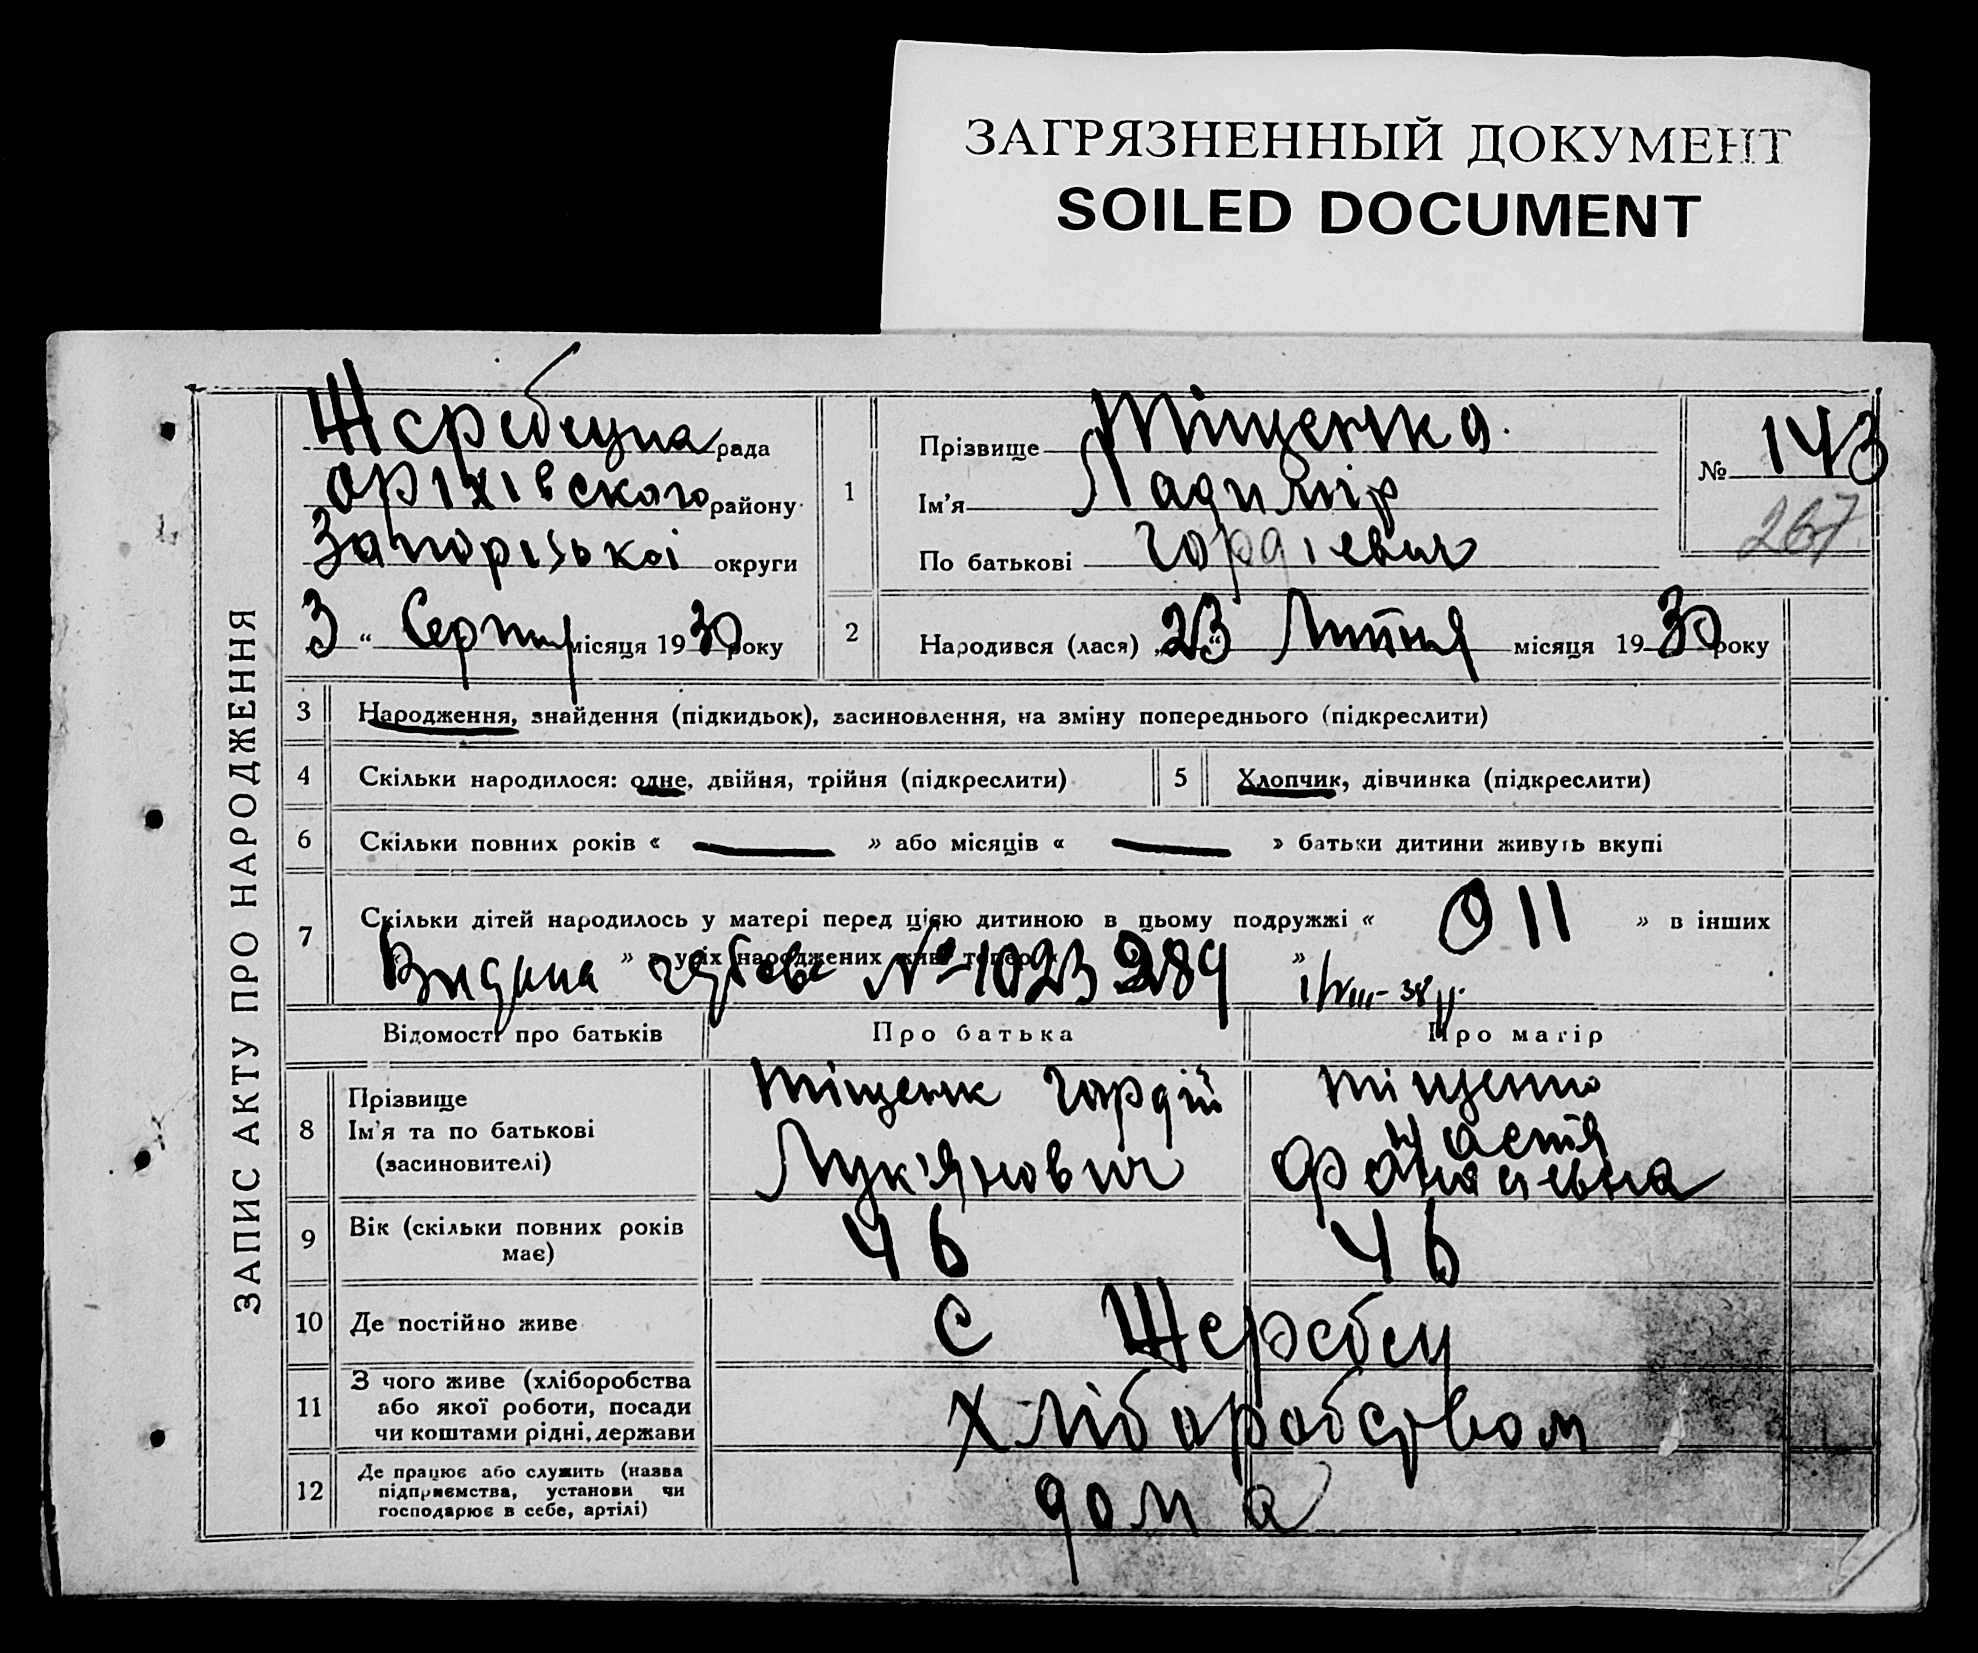 ЗАГРЯЗНЕННЫЙ ДОКУМЕНТ
SOILED DOCUMENT
ЗАПИС АКТУ ПРО НАРОДЖЕННЯ
Жеребецька рада
Оріхівского району
Запорізької округи
3 " Серпня місяця 1930 року
1
Прізвище Тіщенко
Ім'я Ладимір
По батькові Гордієвич
№ 143
267
2
Народився (лася) „ 23 “ Липня місяця 1930 року
3 Народження, знайдення (підкидьок), засиновлення, на зміну попереднього (підкреслити)
4 Скільки народилося: одне, двійня, трійня (підкреслити)
5 Хлопчик, дівчинка (підкреслити)
6 Скільки повних років « — » або місяців « — » батьки дитини живуть вкупі
7 Скільки дітей народилось у матері перед цією дитиною в цьому подружжі « 011 » в інших
» з усіх народжених живі тепер « »
Видана № 1023289
Відомості про батьків
Про батька
Про матір
8 Прізвище
Ім'я та по батькові
(засиновителі)
Тіщенк Гордій
Лук'янович
Тіщенко
Настя
9 Вік (скільки повних років
має)
46
46
10 Де постійно живе
с Жеребец
11 З чого живе (хліборобства
або якої роботи, посади
чи коштами рідні, держави
Хліборобством
12 Де працює або служить (назва
підприємства, установи чи
господарює в себе, артілі)
дома